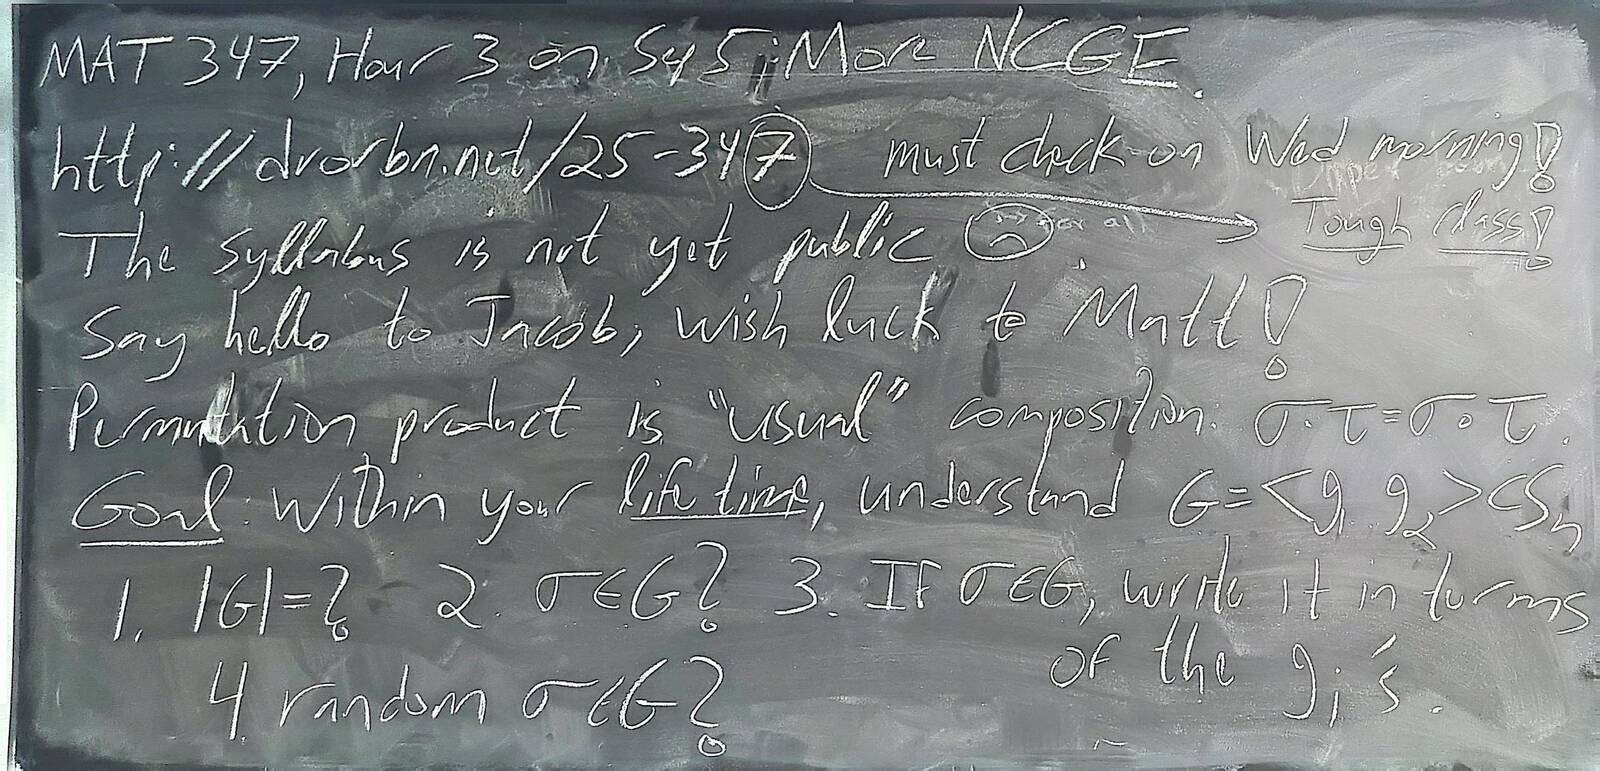 MAT 347, Hour 3 on Sep 5: More NCGE.
http://drorbn.net/25-347 must check on Wed morning!
Tough class!
The syllabus is not yet public ☹
Say hello to Jacob, wish luck to Matt!
Permutation product is "usual" composition: σ·τ=σ∘τ.
Goal: Within your life time, understand G=<g₁ g₂>⊂Sₙ
1. |G|=? 2. σ∈G? 3. If σ∈G, write it in terms
of the gᵢ's.
4. random σ∈G?